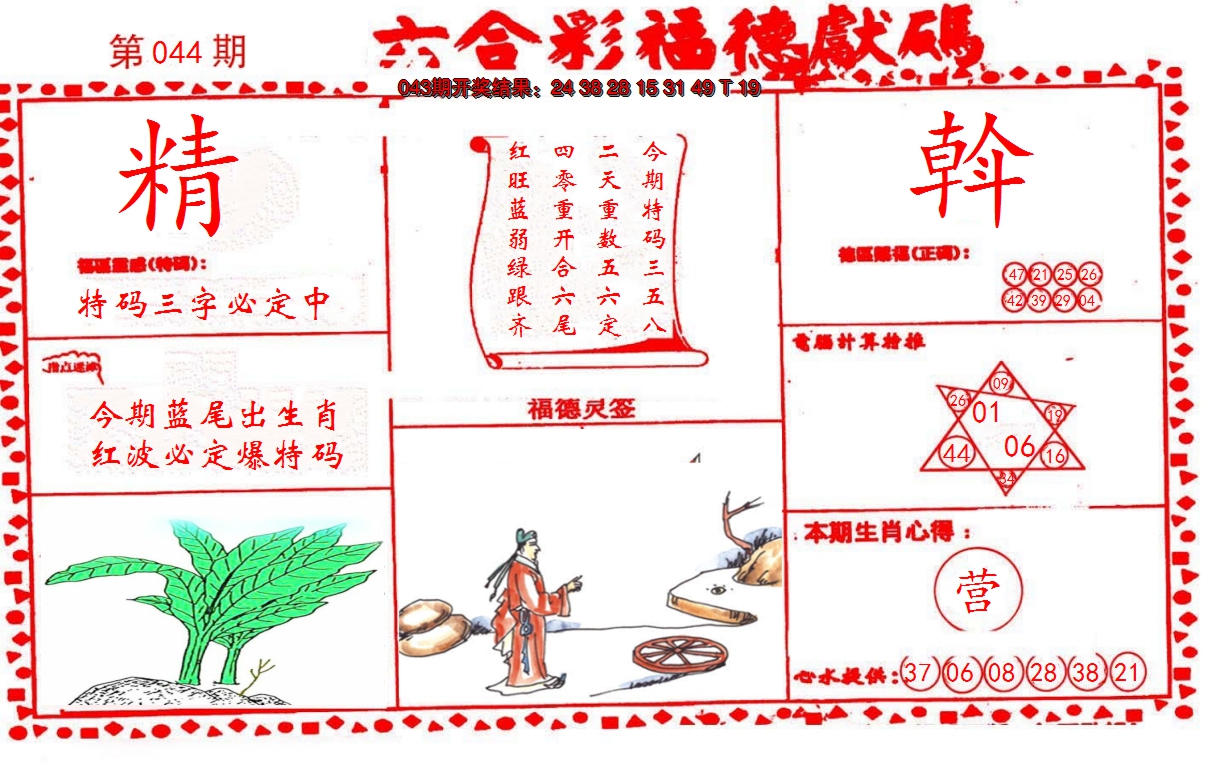 第 044 期
六合彩福德獻碼
043期开奖结果：24 36 28 15 31 49 T 19
精
福區靈感(特碼)：
特码三字必定中
指点迷津
今期蓝尾出生肖
红波必定爆特码
今期特码三五八
二天重数五六定
四零重开合六尾
红旺蓝弱绿跟齐
福德灵签
斡
德區賜福(正碼)：
47 21 25 26
42 39 29 04
電腦計算拾推
09
26 01 19
44 06 16
34
本期生肖心得：
营
心水提供：37 06 08 28 38 21